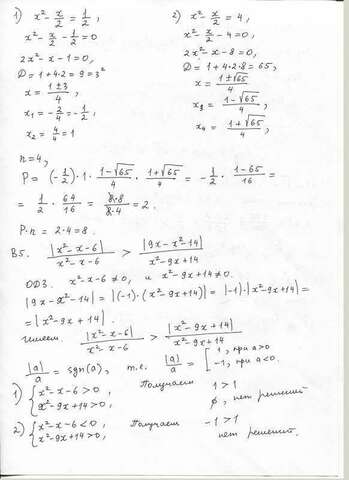 1) x² - x/2 = 1/2,
x² - x/2 - 1/2 = 0
2x² - x - 1 = 0,
D = 1 + 4·2 = 9 = 3²
x = (1 ± 3)/4
x₁ = -2/4 = -1/2,
x₂ = 4/4 = 1
2) x² - x/2 = 4,
x² - x/2 - 4 = 0,
2x² - x - 8 = 0,
D = 1 + 4·2·8 = 65,
x = (1 ± √65)/4
x₃ = (1 - √65)/4,
x₄ = (1 + √65)/4,
n = 4,
P = (-1/2)·1·(1 - √65)/4·(1 + √65)/4 = -1/2·(1 - 65)/16 =
= 1/2·64/16 = 8·8/8·4 = 2.
P·n = 2·4 = 8.
B5. |x² - x - 6|/(x² - x - 6) > |9x - x² - 14|/(x² - 9x + 14)
ОДЗ. x² - x - 6 ≠ 0, и x² - 9x + 14 ≠ 0.
|9x - x² - 14| = |(-1)·(x² - 9x + 14)| = |-1|·|x² - 9x + 14| =
= |x² - 9x + 14|.
Решаем |x² - x - 6|/(x² - x - 6) > |x² - 9x + 14|/(x² - 9x + 14)
|a|/a = sgn(a), т.е. |a|/a = [ 1, при a > 0 -1, при a < 0.
1) { x² - x - 6 > 0, x² - 9x + 14 > 0, Получаем 1 > 1 ∅, нет решений
2) { x² - x - 6 < 0, x² - 9x + 14 > 0, Получаем -1 > 1 нет решений.